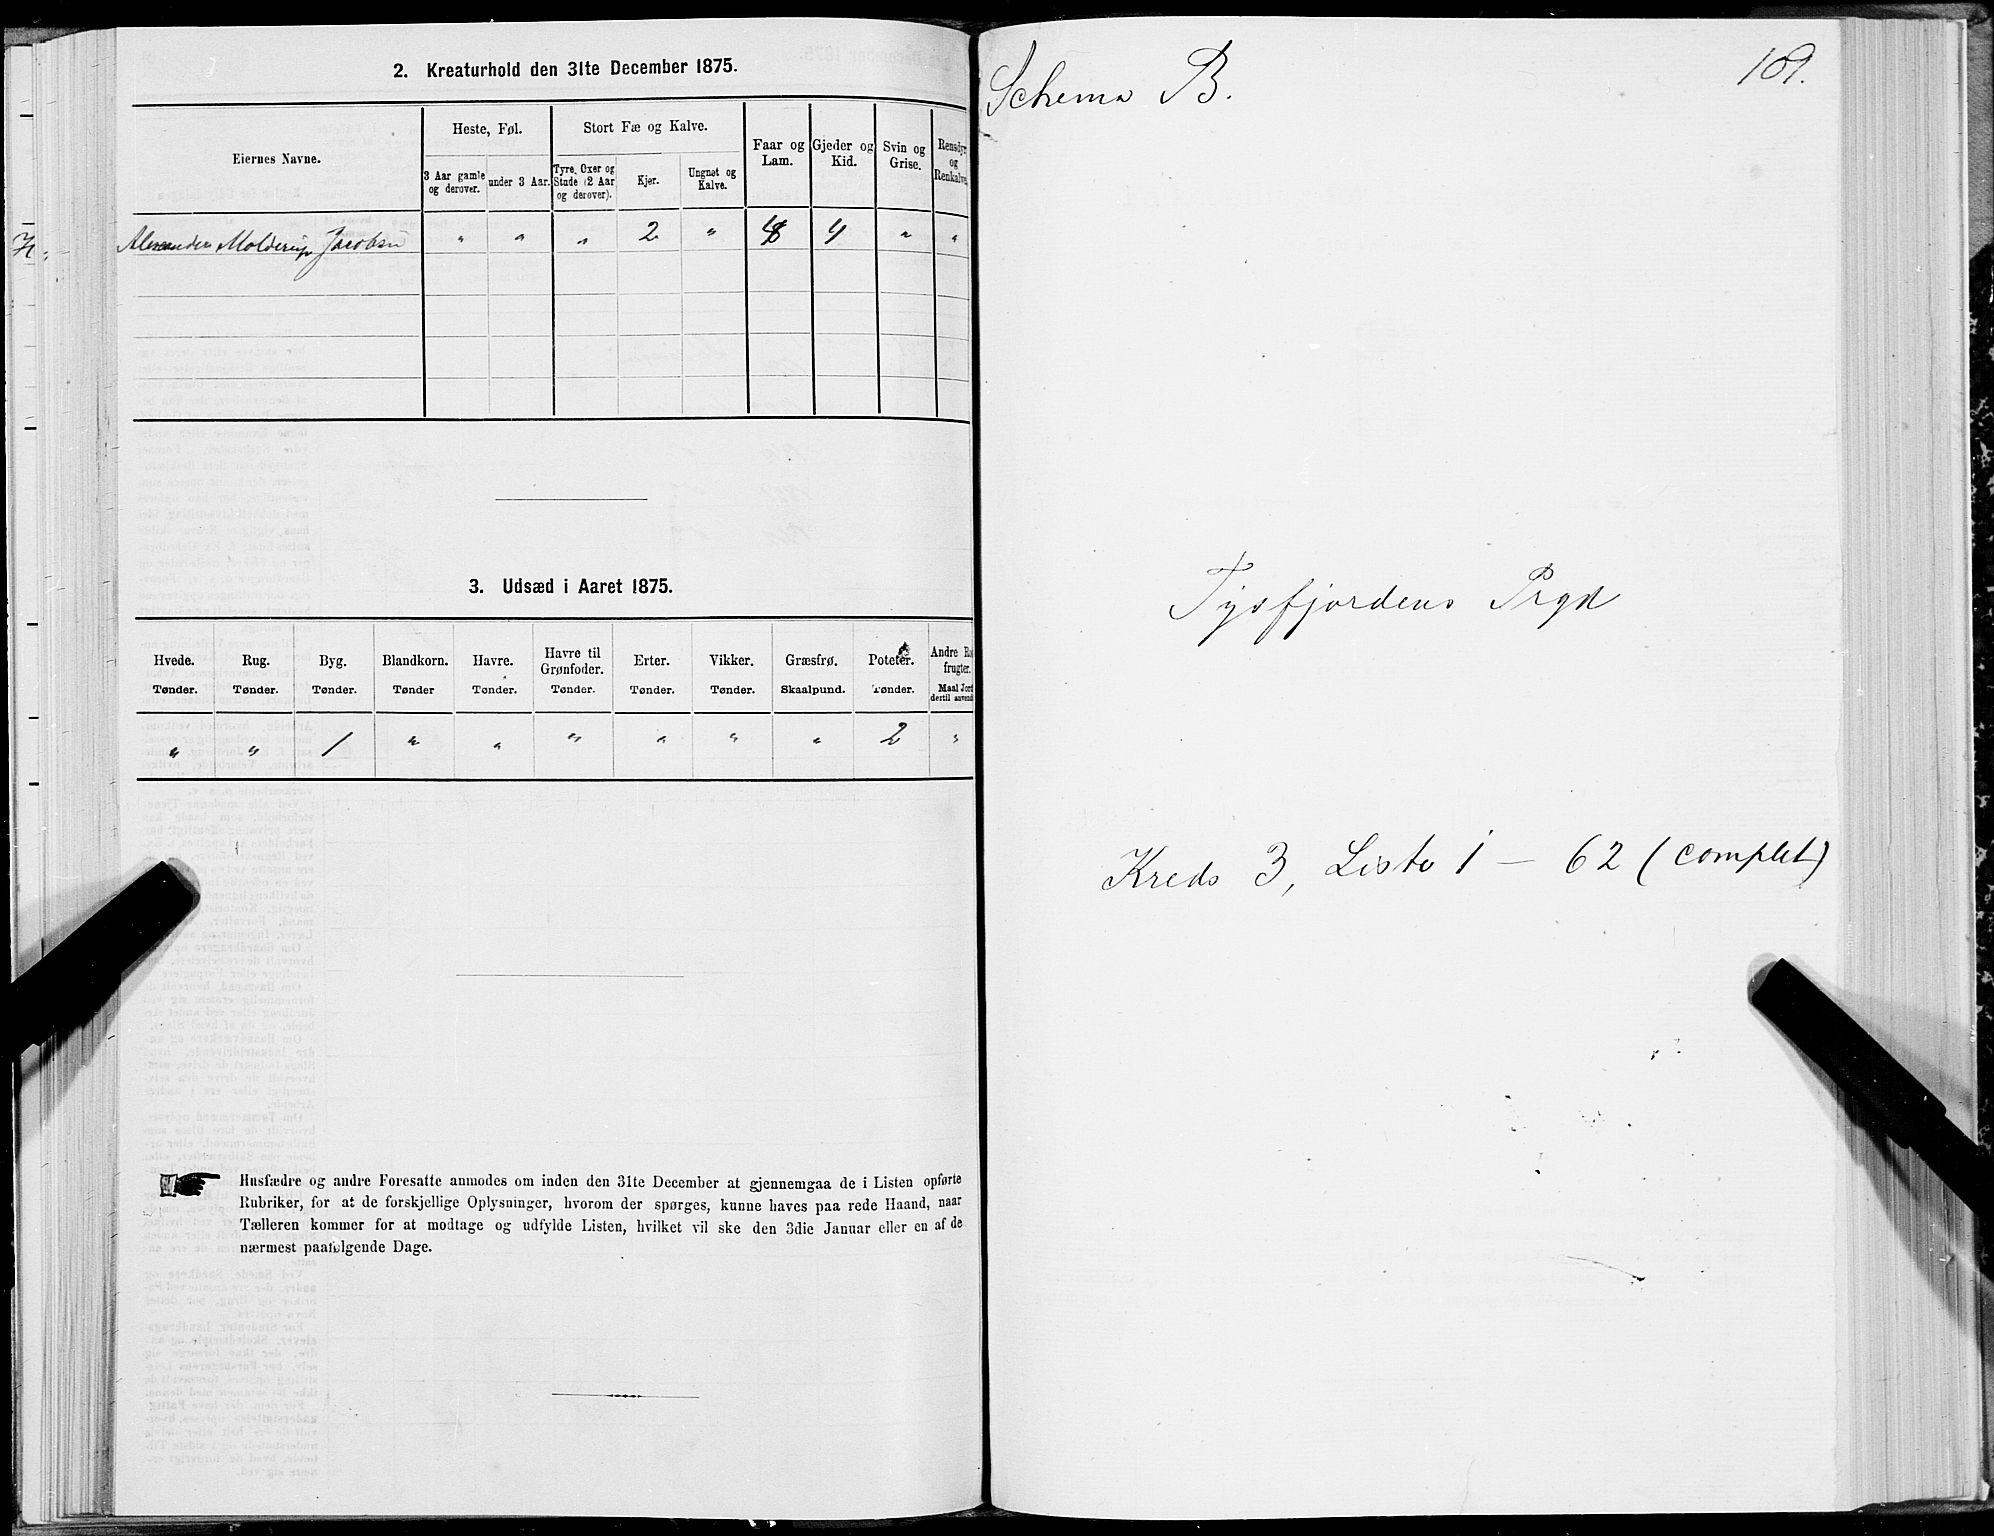 2. Kreaturhold den 31te December 1875.
Eiernes Navne.
Heste, Føl.
Stort Fæ og Kalve.
Faar og Lam.
Gjeder og Kid.
Svin og Grise.
Rensdyr og Renkalve.
3 Aar gamle og derover.
under 3 Aar.
Tyre, Oxer og Stude (2 Aar og derover).
Kjør.
Ungnøt og Kalve.
Alexander Molderup Jacobsen " " " 2 " 8 4 " "
3. Udsæd i Aaret 1875.
Hvede. Rug. Byg. Blandkorn. Havre. Havre til Grønfoder. Erter. Vikker. Græsfrø. Poteter. Andre Ro frugter.
Tønder. Tønder. Tønder. Tønder Tønder. Tønder. Tønder. Tønder. Skaalpund. Tønder. Maal Jord dertil anvend
" " 1 " " " " " " 2 "
Husfædre og andre Foresatte anmodes om inden den 31te December at gjennemgaa de i Listen opførte
Rubriker, for at de forskjellige Oplysninger, hvorom der spørges, kunne haves paa rede Haand, naar
Tælleren kommer for at modtage og udfylde Listen, hvilket vil ske den 3die Januar eller en af de
nærmest paafølgende Dage.
Schema B.
109.
Tysfjordens Prgd
Kreds 3, Liste 1 – 62 (complet)